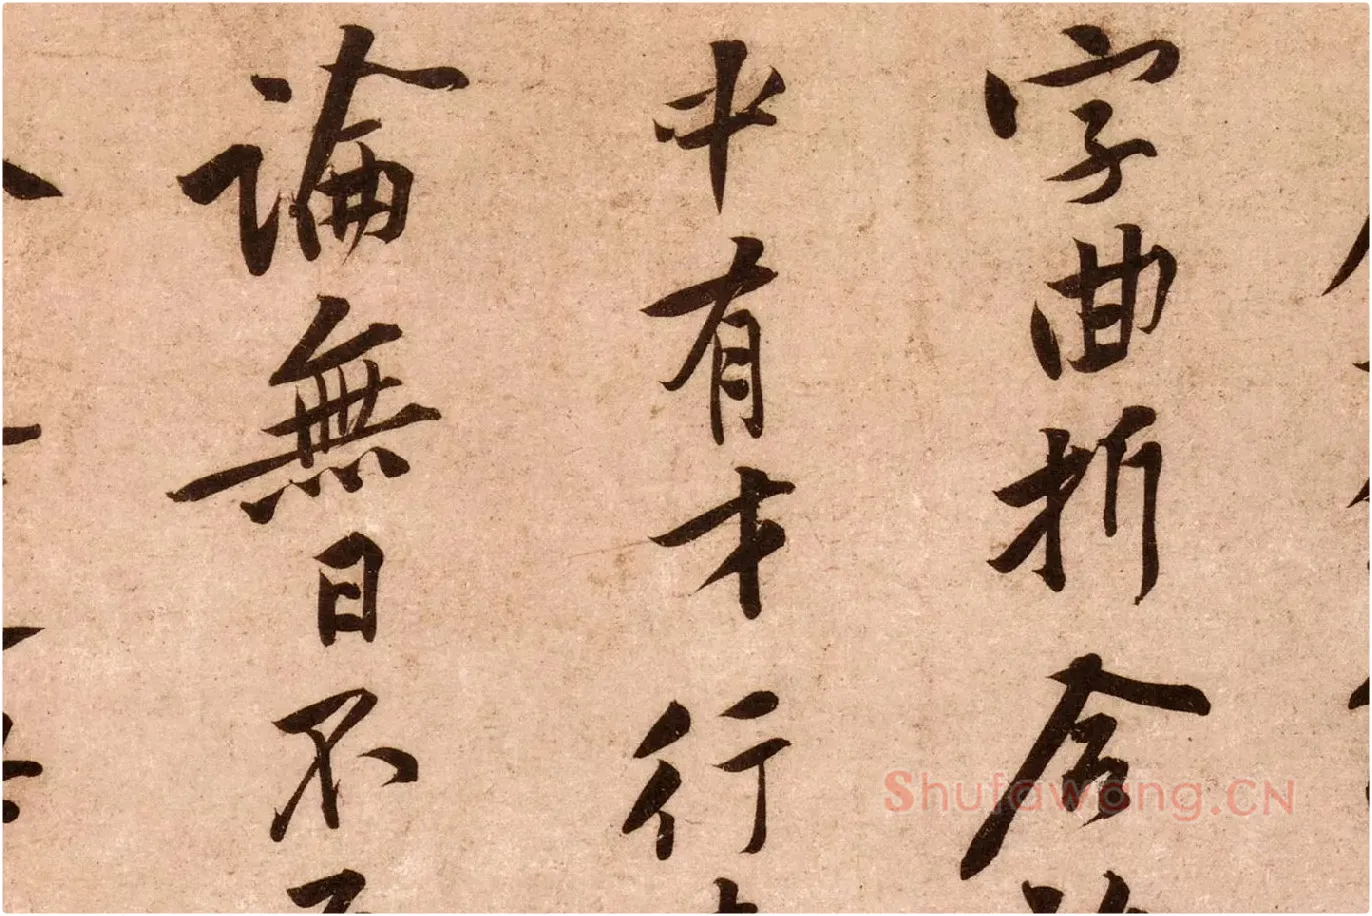 字曲折合
中有才行
論無日不
Shufawang.CN